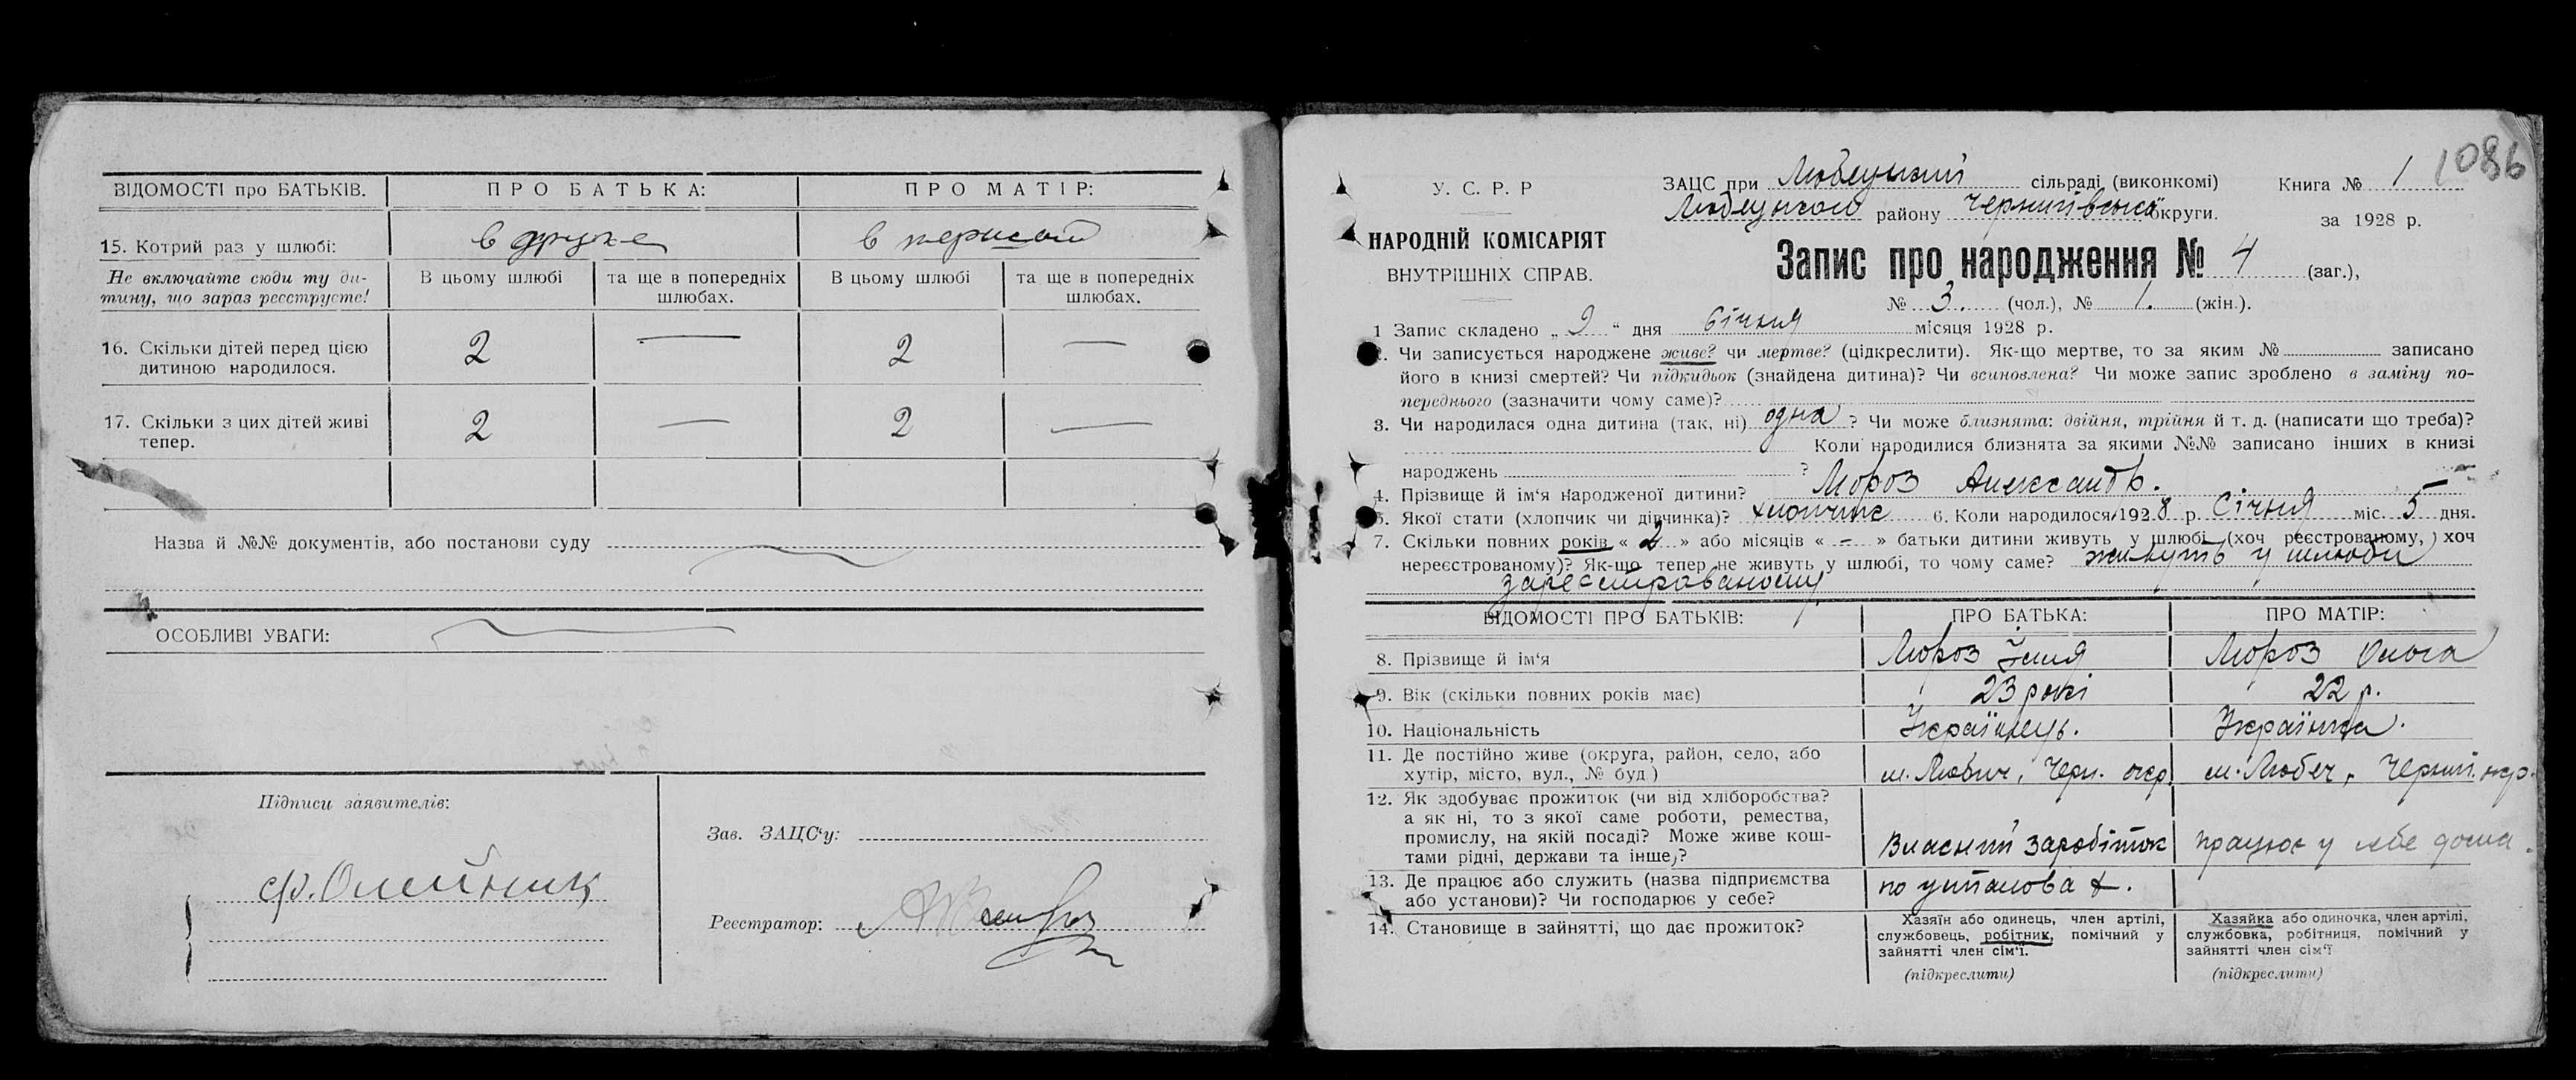 ВІДОМОСТІ про БАТЬКІВ. ПРО БАТЬКА: ПРО МАТІР:
15. Котрий раз у шлюбі: в друге в первой
Не включайте сюди ту ди-
тину, що зараз реєструєте!
В цьому шлюбі та ще в попередніх шлюбах. В цьому шлюбі та ще в попередніх шлюбах.
16. Скільки дітей перед цією
дитиною народилося. 2 — 2 —
17. Скільки з цих дітей живі
тепер. 2 — 2 —
Назва й №№ документів, або постанови суду
ОСОБЛИВІ УВАГИ:
Підписи заявителів:
Зав. ЗАЦС‘у:
ф. Олейник
Реєстратор:
1086
У. С. Р. Р
НАРОДНІЙ КОМІСАРІЯТ
ВНУТРІШНІХ СПРАВ.
ЗАЦС при Любецький сільраді (виконкомі) Книга № 1
Любецького району Чернигівської округи. за 1928 р.
Запис про народження № 4 (заг.),
№ 3. (чол.), № 1. (жін.).
1 Запис складено „ 9 “ дня Січня місяця 1928 р.
2. Чи записується народжене живе? чи мертве? (підкреслити). Як-що мертве, то за яким № записано
його в книзі смертей? Чи підкидьок (знайдена дитина)? Чи всиновлена? Чи може запис зроблено в заміну по-
переднього (зазначити чому саме)?
3. Чи народилася одна дитина (так, ні) одна ? Чи може близнята: двійня, трійня й т. д. (написати що треба)?
Коли народилися близнята за якими №№ записано інших в книзі
народжень ?
4. Прізвище й ім‘я народженої дитини? Мороз Александр.
5. Якої стати (хлопчик чи дівчинка)? хлопчик 6. Коли народилося, 1928 р. Січня міс. 5 дня.
7. Скільки повних років « 2 » або місяців « - » батьки дитини живуть у шлюбі (хоч реєстрованому, хоч
нереєстрованому)? Як-що тепер не живуть у шлюбі, то чому саме? живуть у шлюби
зарестрованому
ВІДОМОСТІ ПРО БАТЬКІВ: ПРО БАТЬКА: ПРО МАТІР:
8. Прізвище й ім‘я Мороз Ілля Мороз Ольга
9. Вік (скільки повних років має) 23 рокі 22 р.
10. Національність Українець. Українка.
11. Де постійно живе (округа, район, село, або
хутір, місто, вул., № буд) м. Любич, Черн. окр. м. Любеч, Черниг. окр.
12. Як здобуває прожиток (чи від хліборобства?
а як ні, то з якої саме роботи, ремества,
промислу, на якій посаді? Може живе кош-
тами рідні, держави та інше)? Власний заробіток працює у себе дома.
13. Де працює або служить (назва підприємства
або установи)? Чи господарює у себе? по установах.
14. Становище в зайнятті, що дає прожиток?
Хазяїн або одинець, член артілі,
службовець, робітник, помічний у
зайнятті член сім‘ї.
(підкреслити)
Хазяйка або одиночка, член артілі,
службовка, робітниця, помічний у
зайнятті член сім‘ї
(підкреслити)